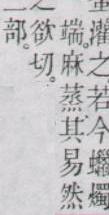 灌之若今蠟燭
端。麻蒸其易然
之欲切。
部。